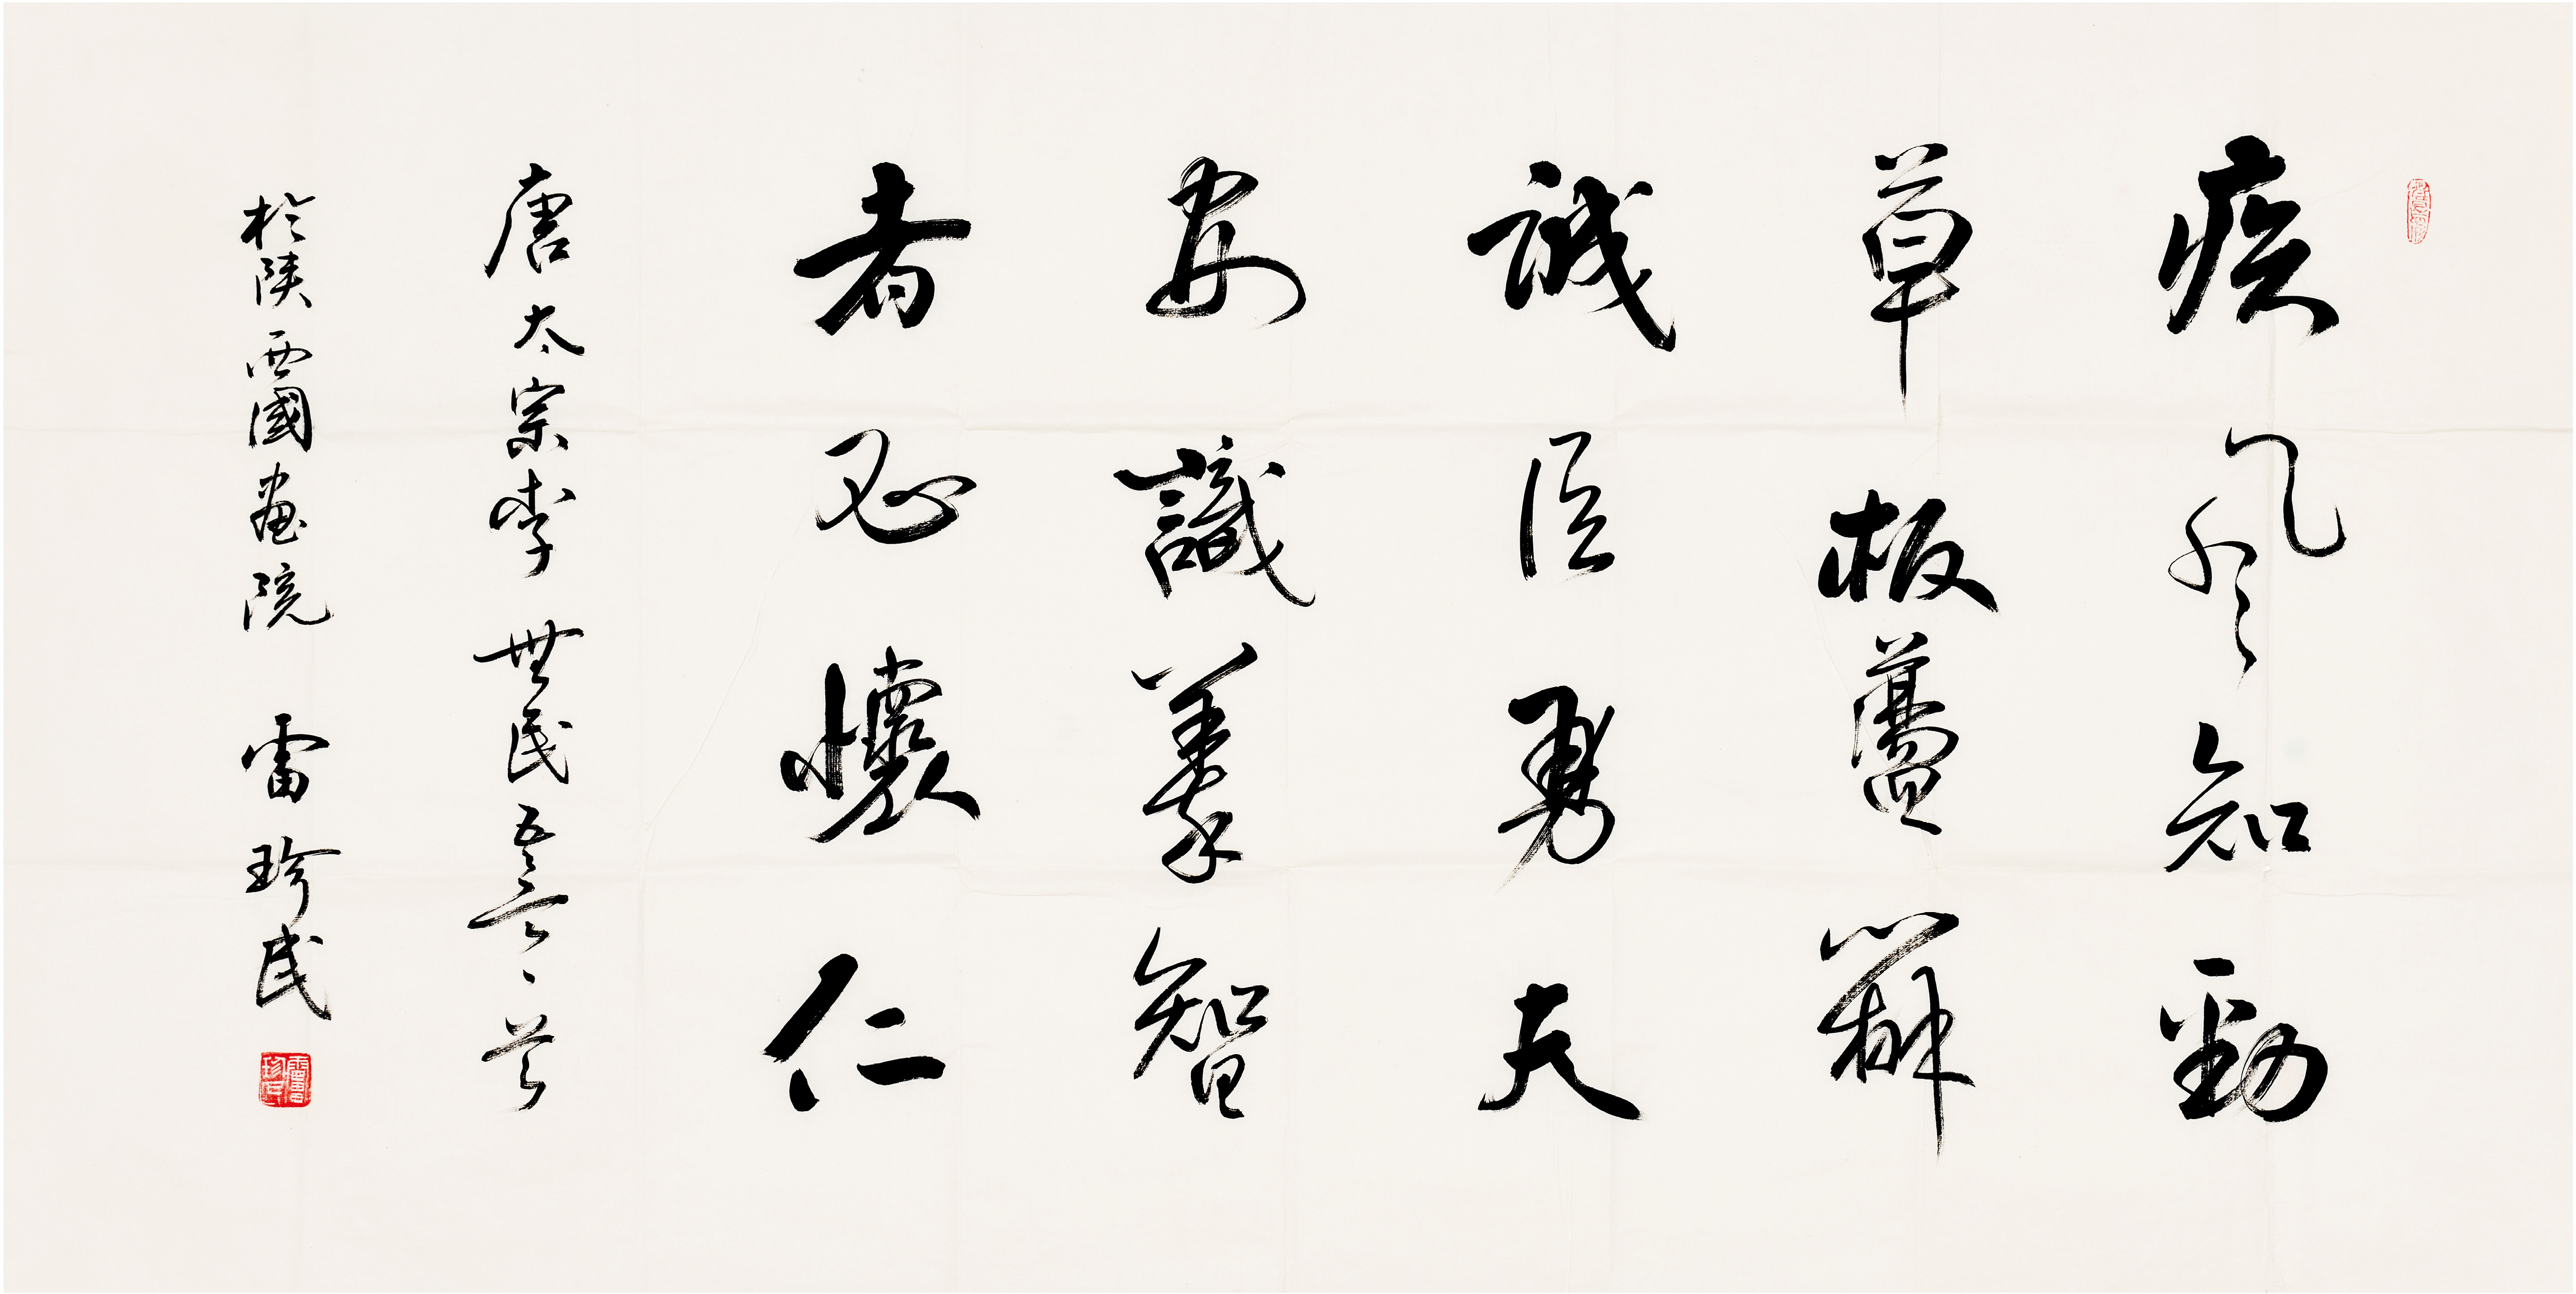 疾風知勁
草板蕩辨
誠臣勇夫
安識義智
者必懷仁
唐太宗李世民五言一首
於陝西國畫院 雷珍民